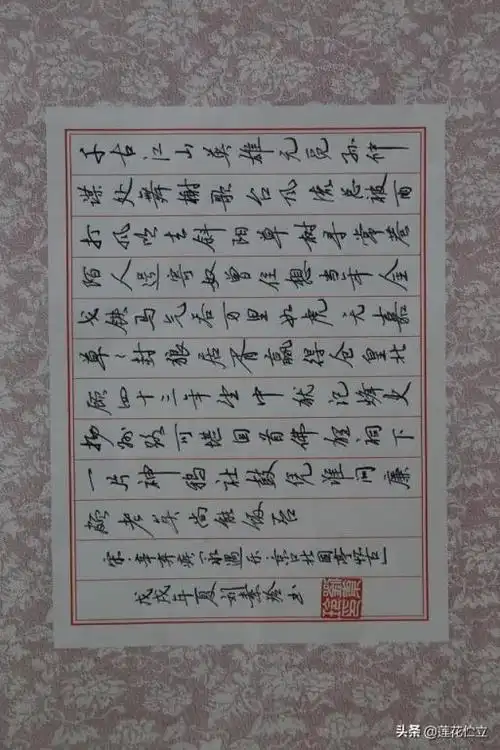 千古江山英雄无觅孙仲
谋处舞榭歌台风流总被雨
打风吹去斜阳草树寻常巷
陌人道寄奴曾住想当年金
戈铁马气吞万里如虎元嘉
草〻封狼居胥赢得仓皇北
顾四十三年望中犹记烽火
扬州路可堪回首佛狸祠下
一片神鸦社鼓凭谁问廉
颇老矣尚能饭否
宋·辛弃疾《永遇乐·京口北固亭怀古》
戊戌年夏刘书
头条 @莲花伫立